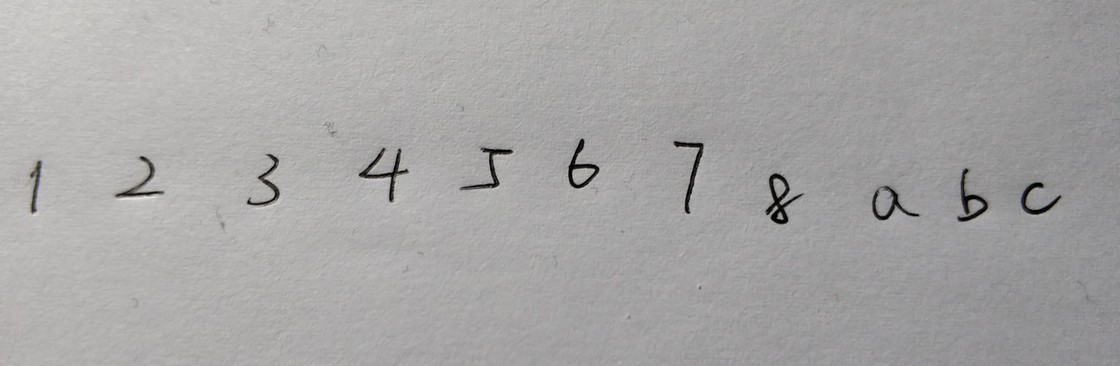 1 2 3 4 5 6 7 8 a b c